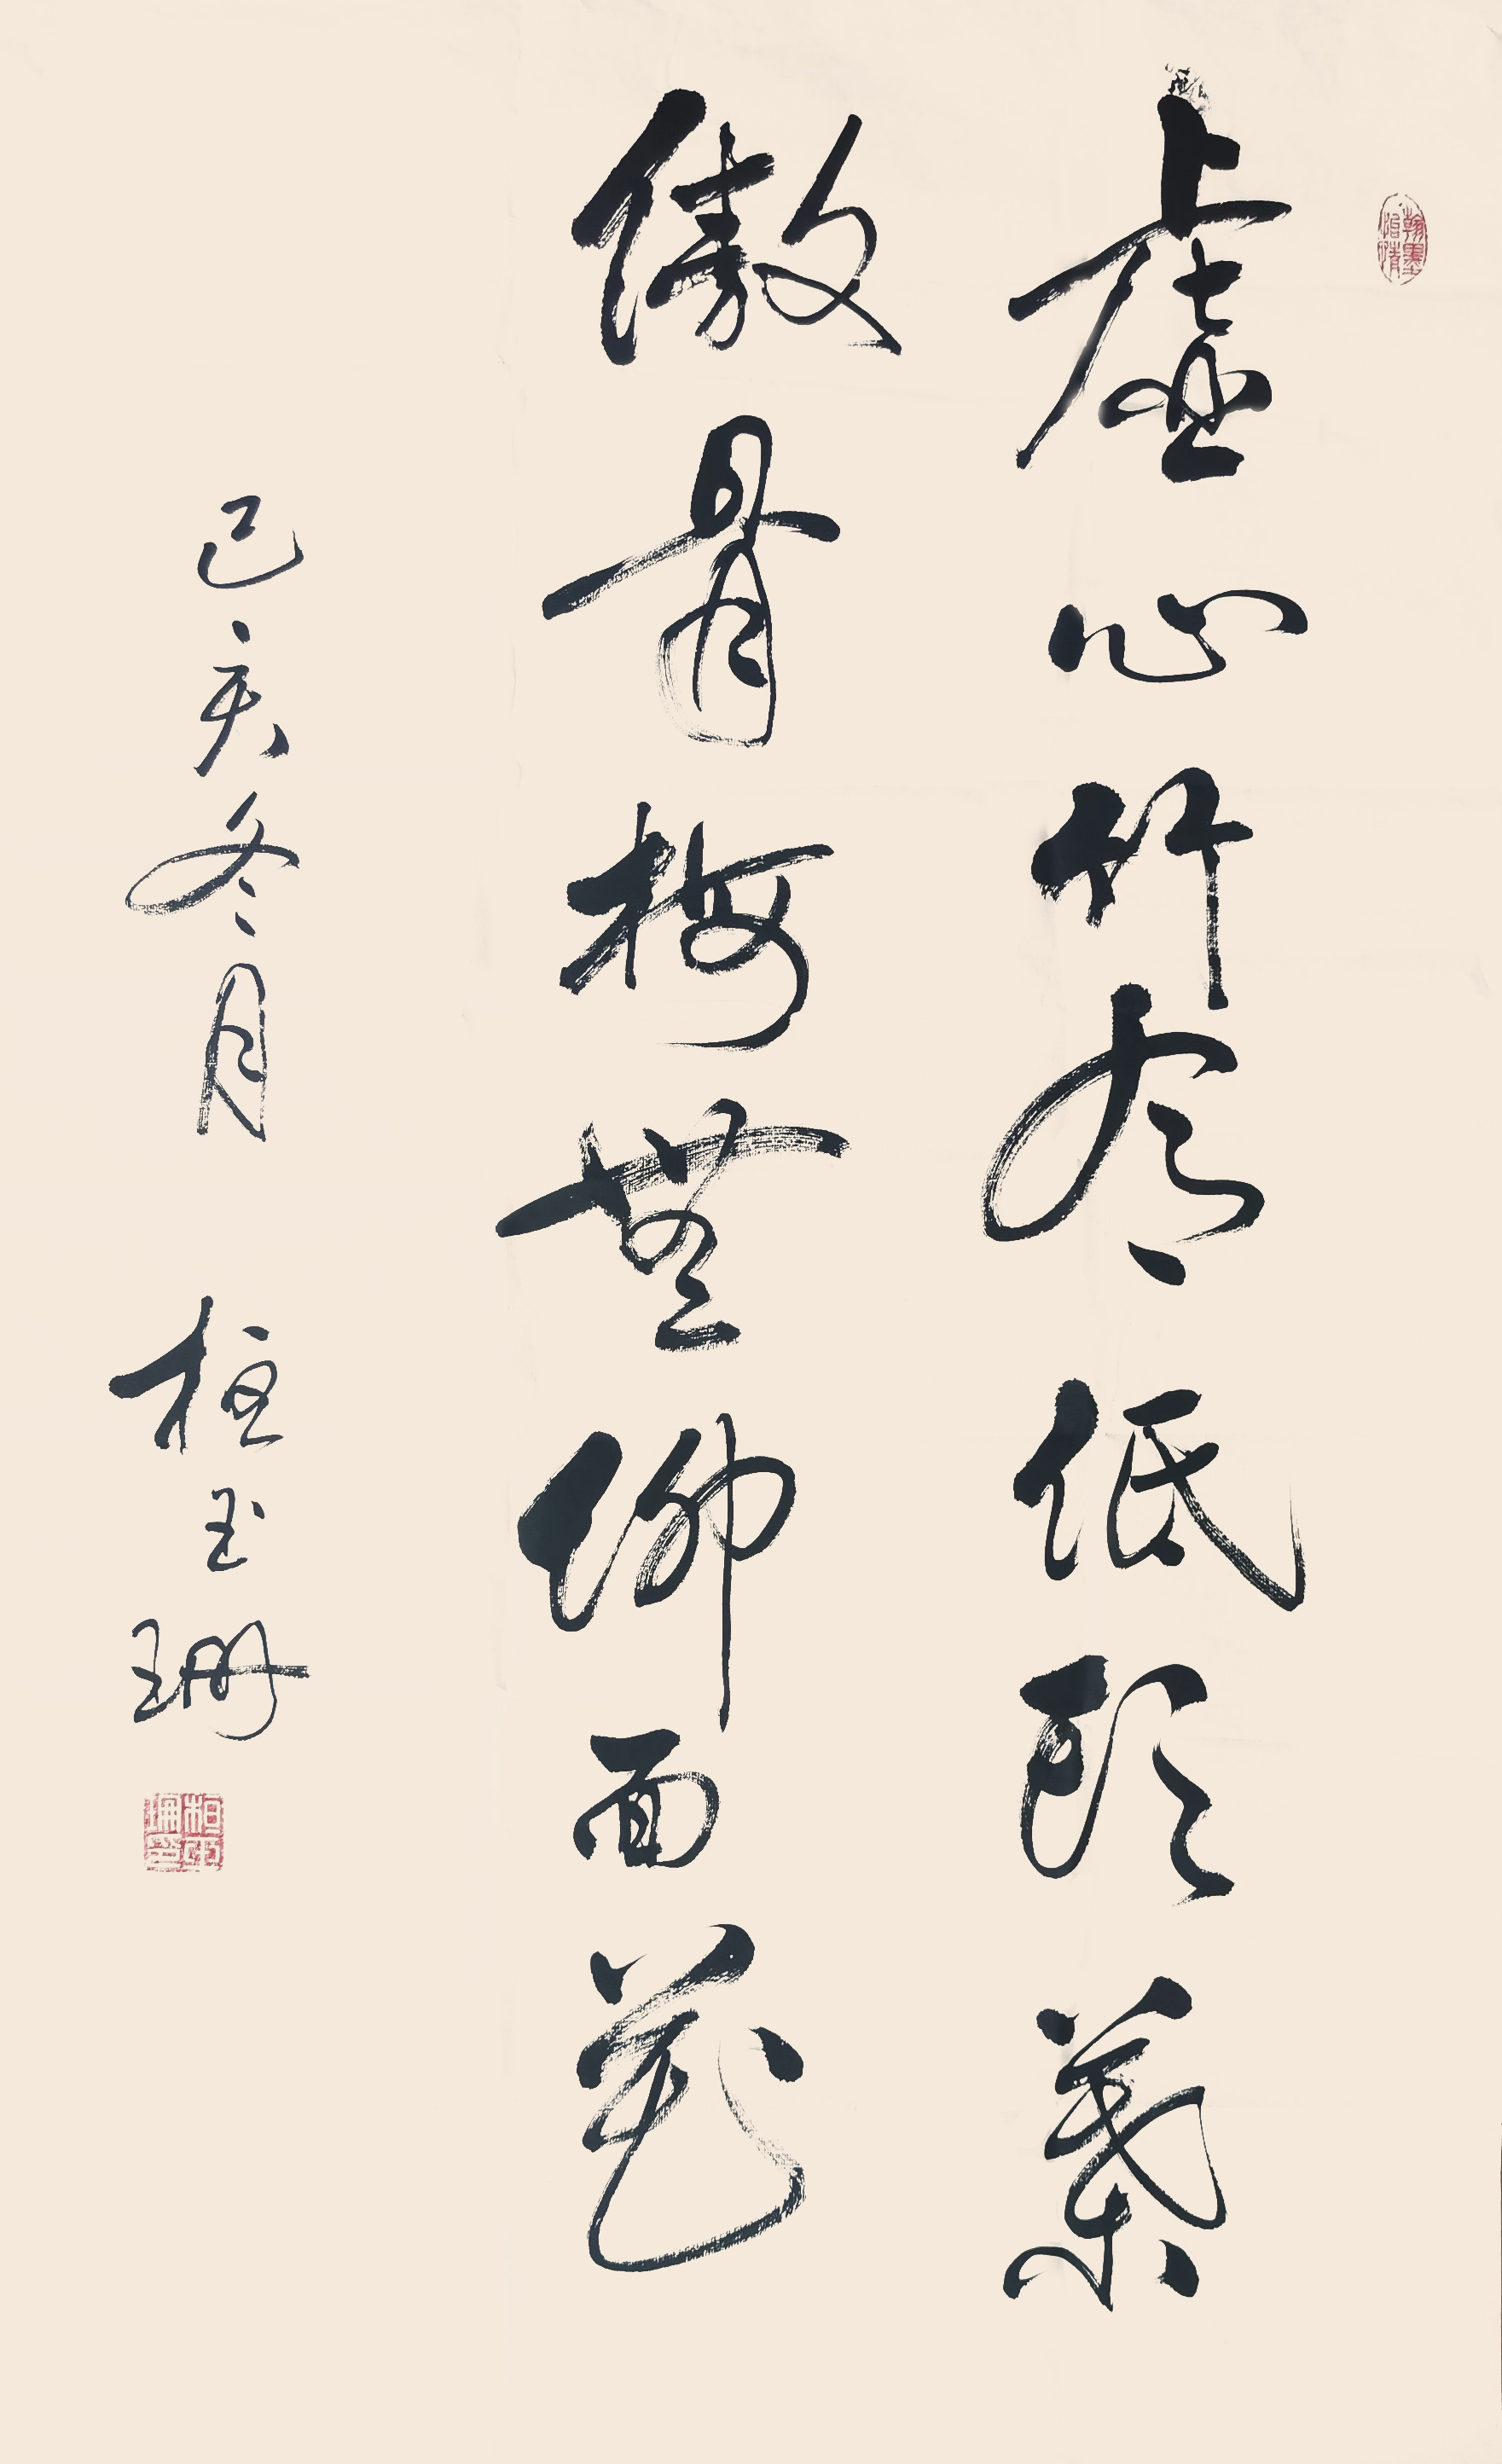 翰墨怡情
虚心竹有低頭葉
傲骨梅無仰面花
己亥冬月 柏玉珊
柏玉珊印